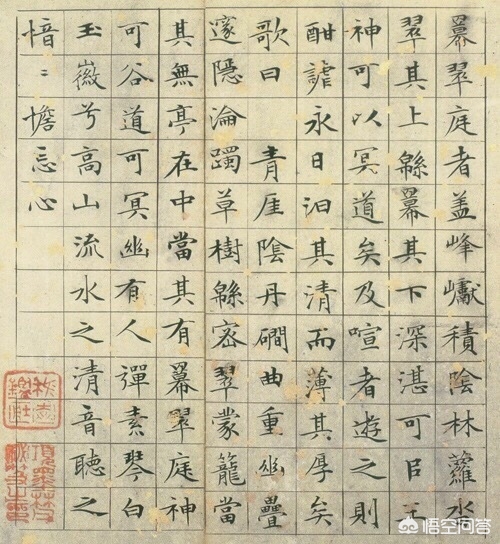 冪翠庭者盖峰巘積陰林蘿水
翠其上緜冪其下深湛可㠯王
神可以冥道矣及喧者遊之則
酣謔永日汨其清而薄其厚矣
歌曰 青崖陰丹磵曲重幽疊
邃隱淪躅草樹緜密翠蒙籠當
其無亭在中當其有冪翠庭神
可谷道可冥幽有人彈素琴白
玉徽兮高山流水之清音聽之
愔〻憺忘心
項墨林父祕笈之印
悟空问答